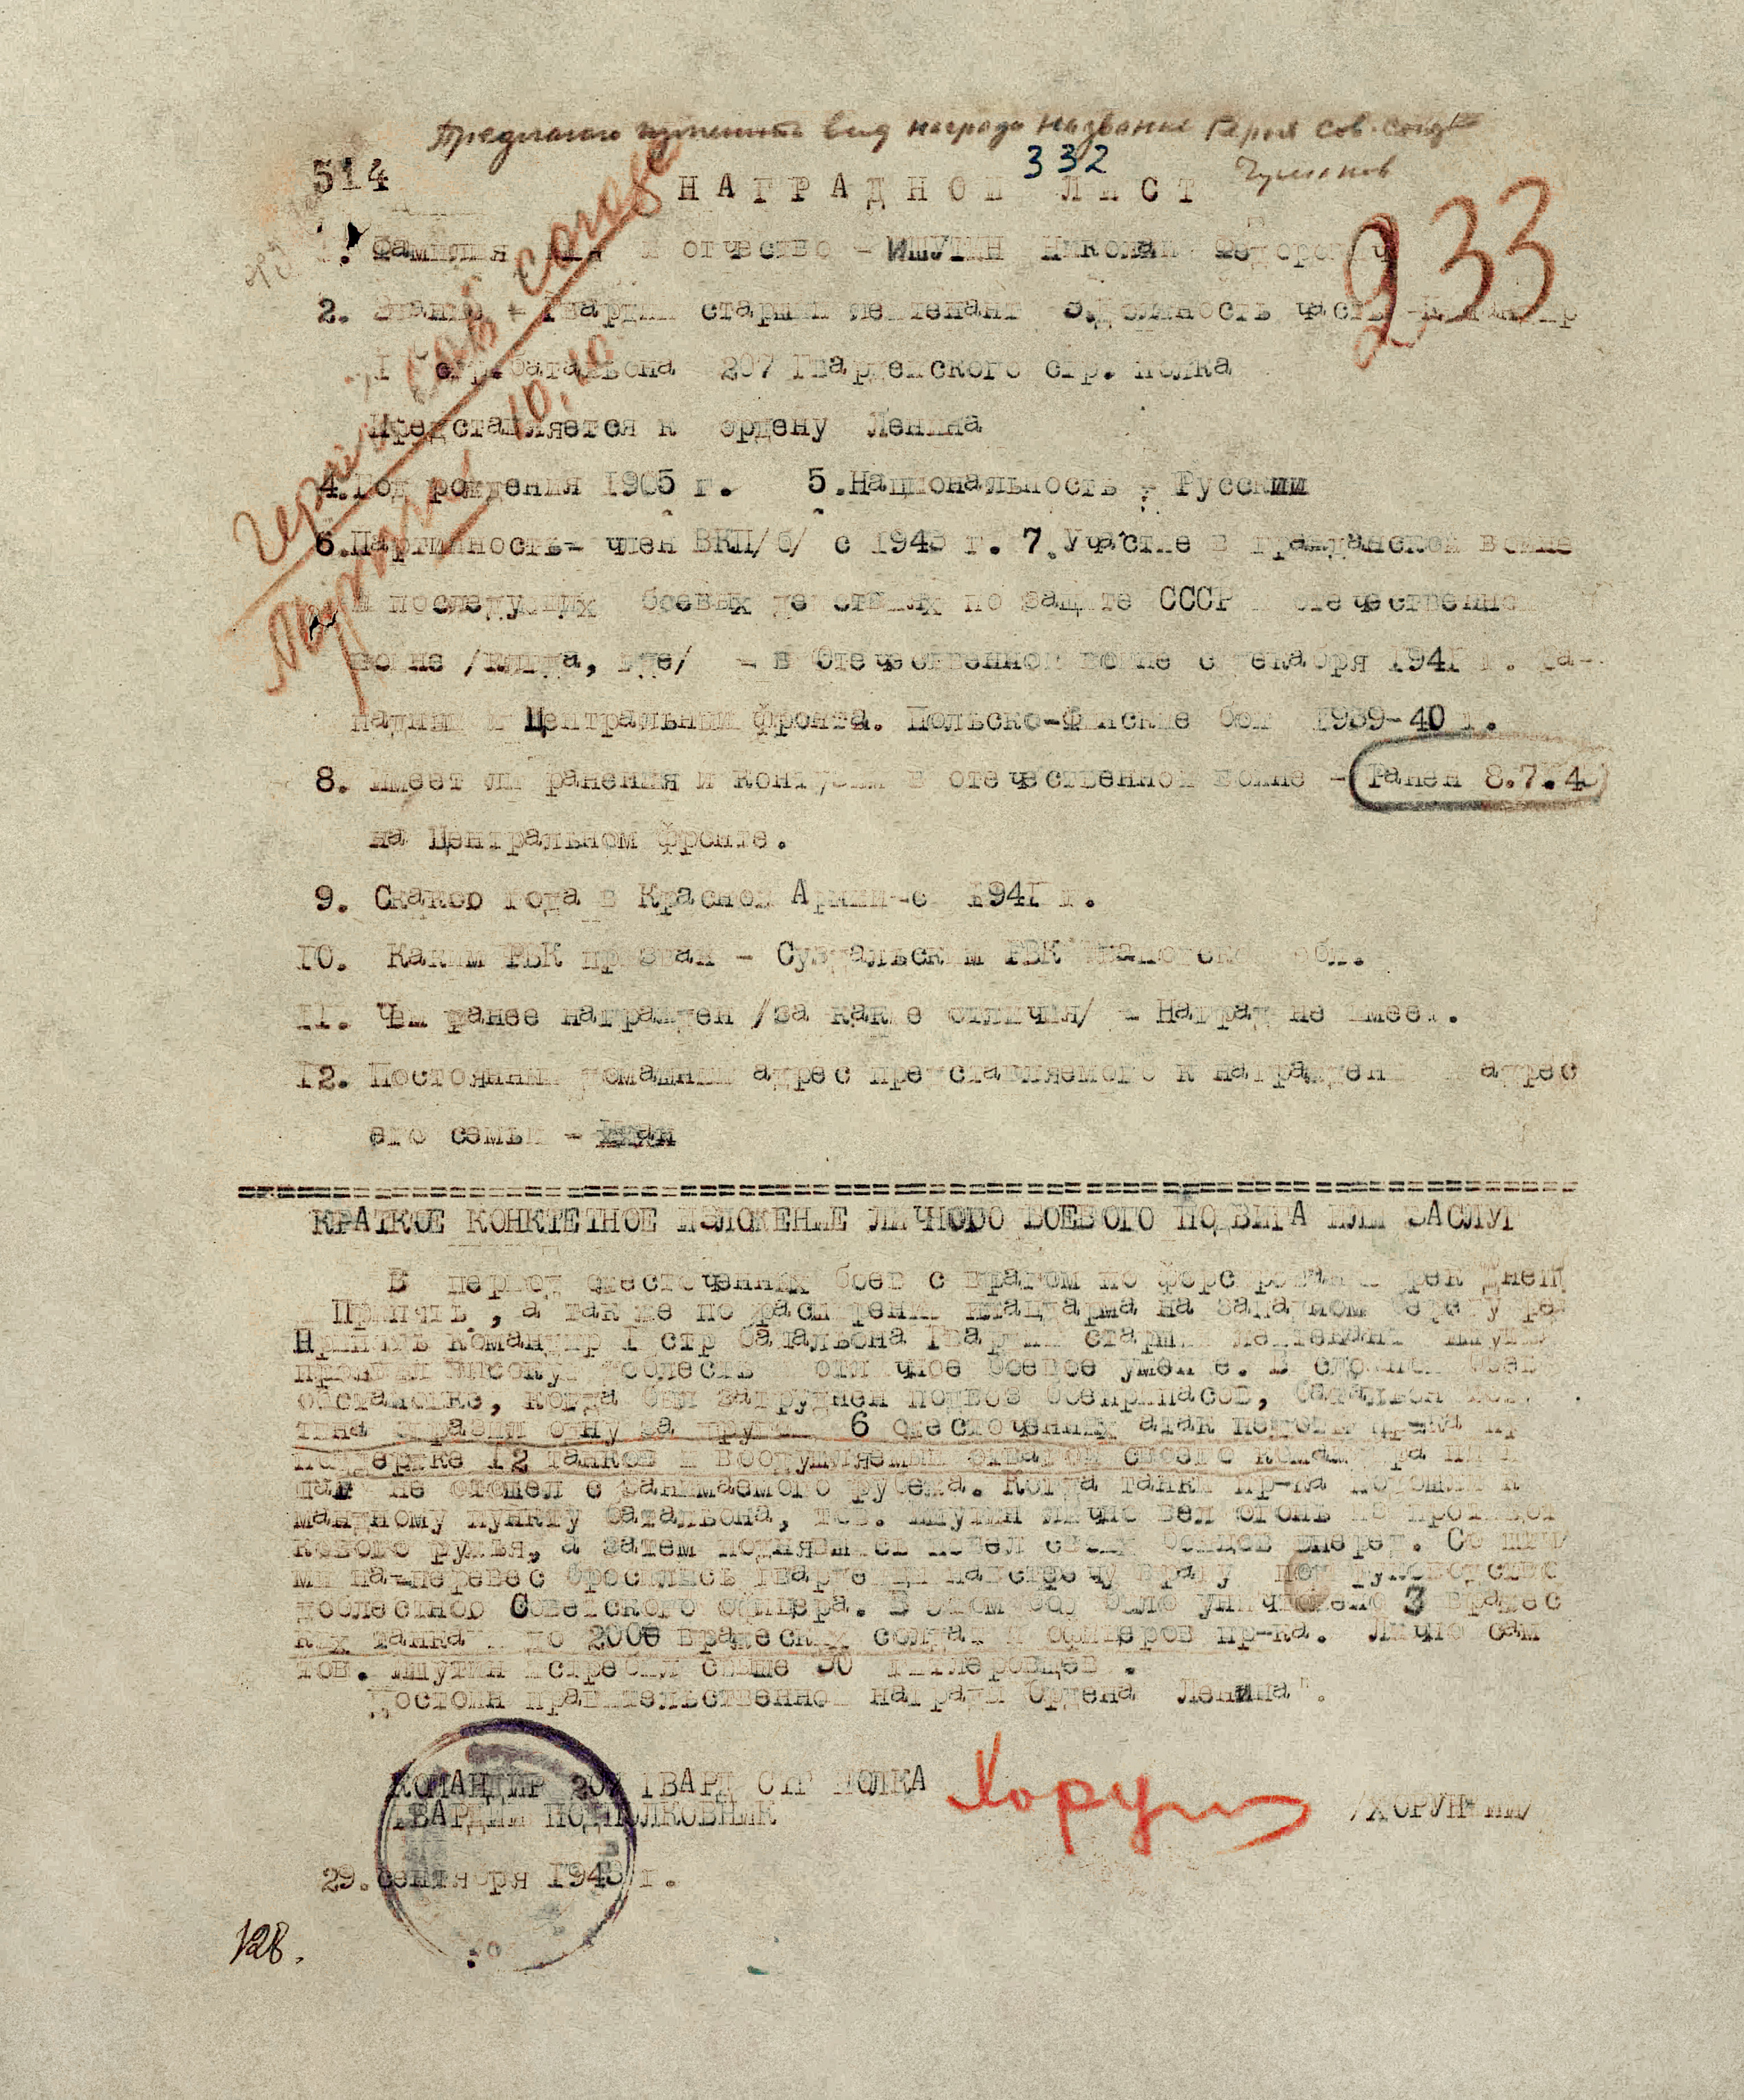 Предлагаю изменить вид награды название Героя Сов. Союза
Чумаков
332
514
НАГРАДНОЙ ЛИСТ
233
Героя Сов Союза
10.10
1. Фамилия имя и отчество - ИШУТИН Николай Федорович
2. Звание - Гвардии старший лейтенант 3. Должность часть - командир
I стр. батальона 207 Гвардейского стр. полка
Представляется к ордену Ленина
4. Год рождения 1905 г. 5. Национальность - Русский
6. Партийность - член ВКП/б/ с 1943 г. 7. Участие в гражданской войне
и последующих боевых действиях по защите СССР и отечественной
войне /когда, где/ - в Отечественной войне с декабря 1941 г. За-
падный и Центральный фронта. Польско-Финские бои 1939-40 г.
8. Имеет ли ранения и контузии в отечественной войне - Ранен 8.7.4
на Центральном фронте.
9. Скакоо года в Красной Армии-с 1941 г.
10. Каким РВК призван - Суздальским РВК Ивановской обл.
11. Чем ранее награжден /за какие отличия/ - Наград не имеет.
12. Постоянный домашний адрес представляемого к награждению и адрес
его семьи -
КРАТКОЕ КОНКТЕТНОЕ ИЗЛОЖЕНИЕ ЛИЧНОРО БОЕВОГО ПОДВИГА ИЛИ ЗАСЛУГ
В период ожесточенных боев с врагом по форсированию рек Днеп
Припять, а также по расширению плацдарма на западном берегу ре
Припять командир I стр батальона Гвардии старший лейтенант Ишутин
проявил высокую доблесть и отличное боевое умение. В сложной боев
обстановке, когда был затруднен подвоз боеприпасов, батальон Ишу
тина отразил одну за другой 6 ожесточенных атак пехоты пр-ка пр
поддержке 12 танков и воодушевляемый отвагой своего командира ни
шаг не отошел с занимаемого рубежа. Когда танки пр-ка подошли к
мандному пункту батальона, тов. Ишутин лично вел огонь из противот
кового ружья, а затем поднявшись повел своих бойцов вперед. Со шты
ми на-перевес бросились гвардейцы навстречу врагу под руководство
доблестноо Советского офицера. В этом бою было уничтожено 3 вражес
ких танка и до 200 вражеских солдат и офицеров пр-ка. Лично сам
тов. Ишутин истребил свыше 30 гитлеровцев.
Достоин правительственной награды Ордена Ленина".
КОМАНДИР 207 ГВАРД СТР ПОЛКА
ГВАРДИИ ПОДПОЛКОВНИК
Хоруж
/ХОРУНЖИЙ/
29. сентября 1943 г.
128.